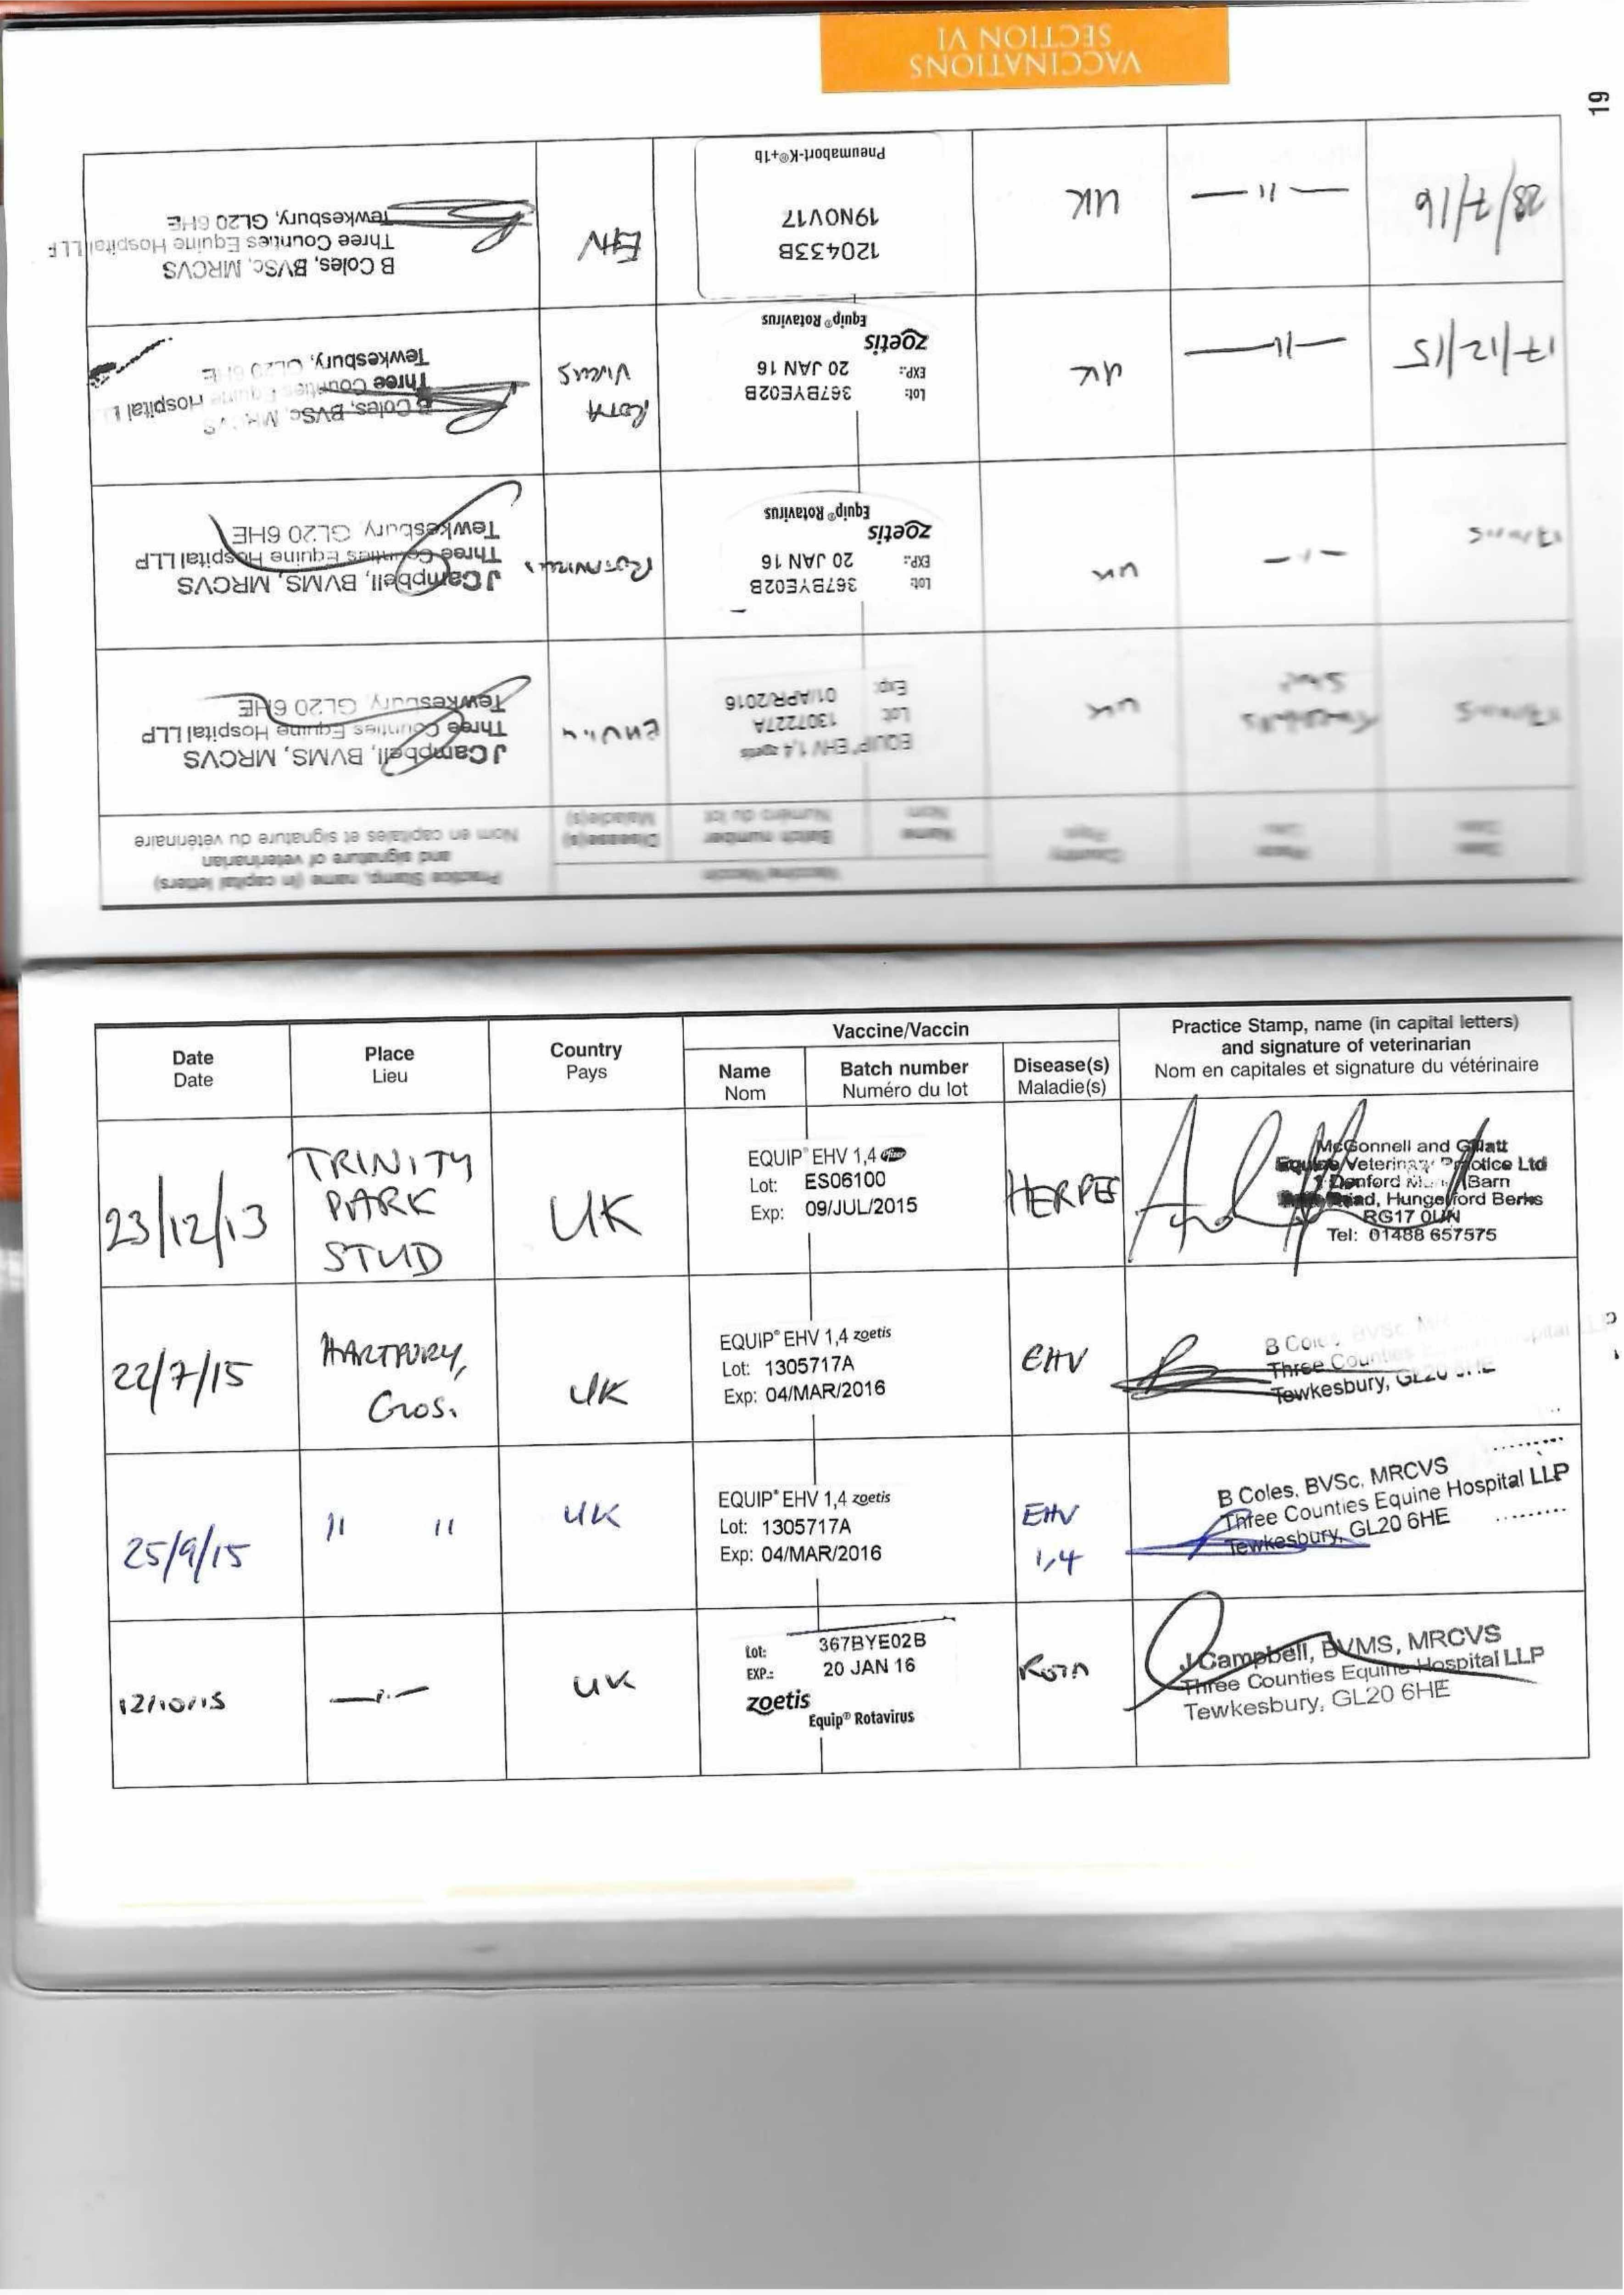 Date
Date
Place
Lieu
Country
Pays
Vaccine/Vaccin
Name
Nom
Batch number
Numéro du lot
Disease(s)
Maladie(s)
Practice Stamp, name (in capital letters)
and signature of veterinarian
Nom en capitales et signature du vétérinaire
23/12/13
TRINITY
PARK
STUD
UK
EQUIP® EHV 1,4 Pfizer
Lot: ES06100
Exp: 09/JUL/2015
HERPES
McGonnell and Gillatt
Equine Veterinary Practice Ltd
Denford Barn
Road, Hungerford Berks
RG17 0UN
Tel: 01488 657575
22/7/15
HARTPURY,
GLOS.
UK
EQUIP® EHV 1,4 zoetis
Lot: 1305717A
Exp: 04/MAR/2016
EHV
B Coles BVSc
Three Counties
Tewkesbury, GL20 6HE
25/9/15
" "
UK
EQUIP® EHV 1,4 zoetis
Lot: 1305717A
Exp: 04/MAR/2016
EHV
1,4
B Coles, BVSc, MRCVS
Three Counties Equine Hospital LLP
Tewkesbury, GL20 6HE
12/10/15
UK
Lot: 367BYE02B
EXP.: 20 JAN 16
zoetis
Equip® Rotavirus
Rota
J Campbell, BVMS, MRCVS
Three Counties Equine Hospital LLP
Tewkesbury, GL20 6HE
Date
Date
Place
Lieu
Country
Pays
Vaccine/Vaccin
Name
Nom
Batch number
Numéro du lot
Disease(s)
Maladie(s)
Practice Stamp, name (in capital letters)
and signature of veterinarian
Nom en capitales et signature du vétérinaire
Stud
UK
EQUIP® EHV 1,4 zoetis
Lot: 1307227A
Exp: 01/APR/2016
EHV 1,4
J Campbell, BVMS, MRCVS
Three Counties Equine Hospital LLP
Tewkesbury, GL20 6HE
UK
Lot: 367BYE02B
EXP.: 20 JAN 16
zoetis
Equip® Rotavirus
Rotavirus
J Campbell, BVMS, MRCVS
Three Counties Equine Hospital LLP
Tewkesbury, GL20 6HE
17/12/15
— " —
UK
Lot: 367BYE02B
EXP.: 20 JAN 16
zoetis
Equip® Rotavirus
ROTA
VIRUS
B Coles, BVSc, MRCVS
Three Counties Equine Hospital L
Tewkesbury, GL20 6HE
28/7/16
— " —
UK
120433B
19NOV17
Pneumabort-K®+1b
EHV
B Coles, BVSc, MRCVS
Three Counties Equine Hospital LLP
Tewkesbury, GL20 6HE
19
VACCINATIONS
SECTION VI